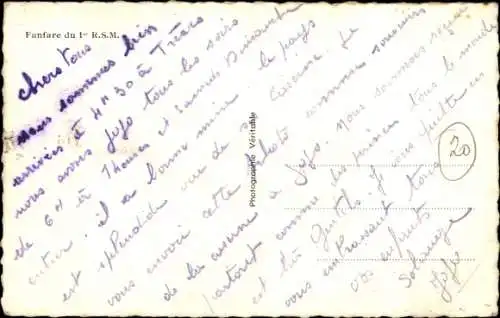 Fanfare du 1er R.S.M.
Photographie Véritable
20
chers tous
nous sommes bien
arrivés à 4H30 à Trèves
nous avons Jojo tous les soirs
de 6H à 7 heures et Samedi Dimanche
entier. il a bonne mine le pays
est splendide vue de sa caserne. Je
vous envoi cette photo comme souvenir
de la caserne à Jojo. Nous sommes reçus
partout comme des princes tous le monde
est très gentils. Je vous quitte en
vous embrassant tous
vos enfants
Solange
Jojo